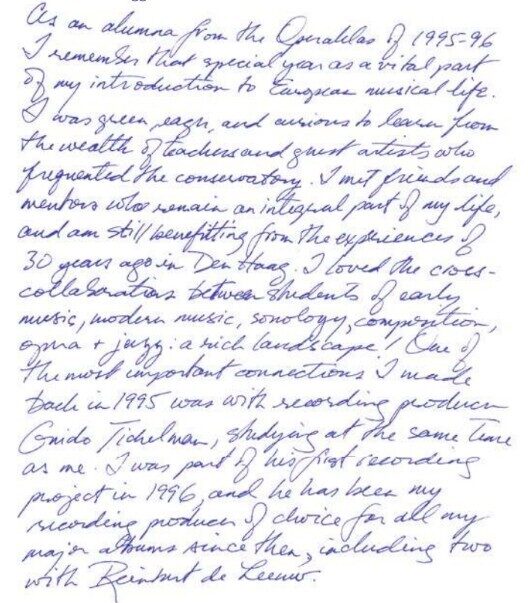 As an alumna from the Operaklas of 1995-96
I remember that special year as a vital part
of my introduction to European musical life.
I was green, eager, and curious to learn from
the wealth of teachers and guest artists who
frequented the conservatory. I met friends and
mentors who remain an integral part of my life,
and am still benefitting from the experiences of
30 years ago in Den Haag. I loved the cross-
collaboration between students of early
music, modern music, sonology, composition,
opera + jazz: a rich landscape! One of
the most important connections I made
back in 1995 was with recording producer
Guido Tichelman, studying at the same time
as me. I was part of his first recording
project in 1996, and he has been my
recording producer of choice for all my
major albums since then, including two
with Reinbert de Leeuw.